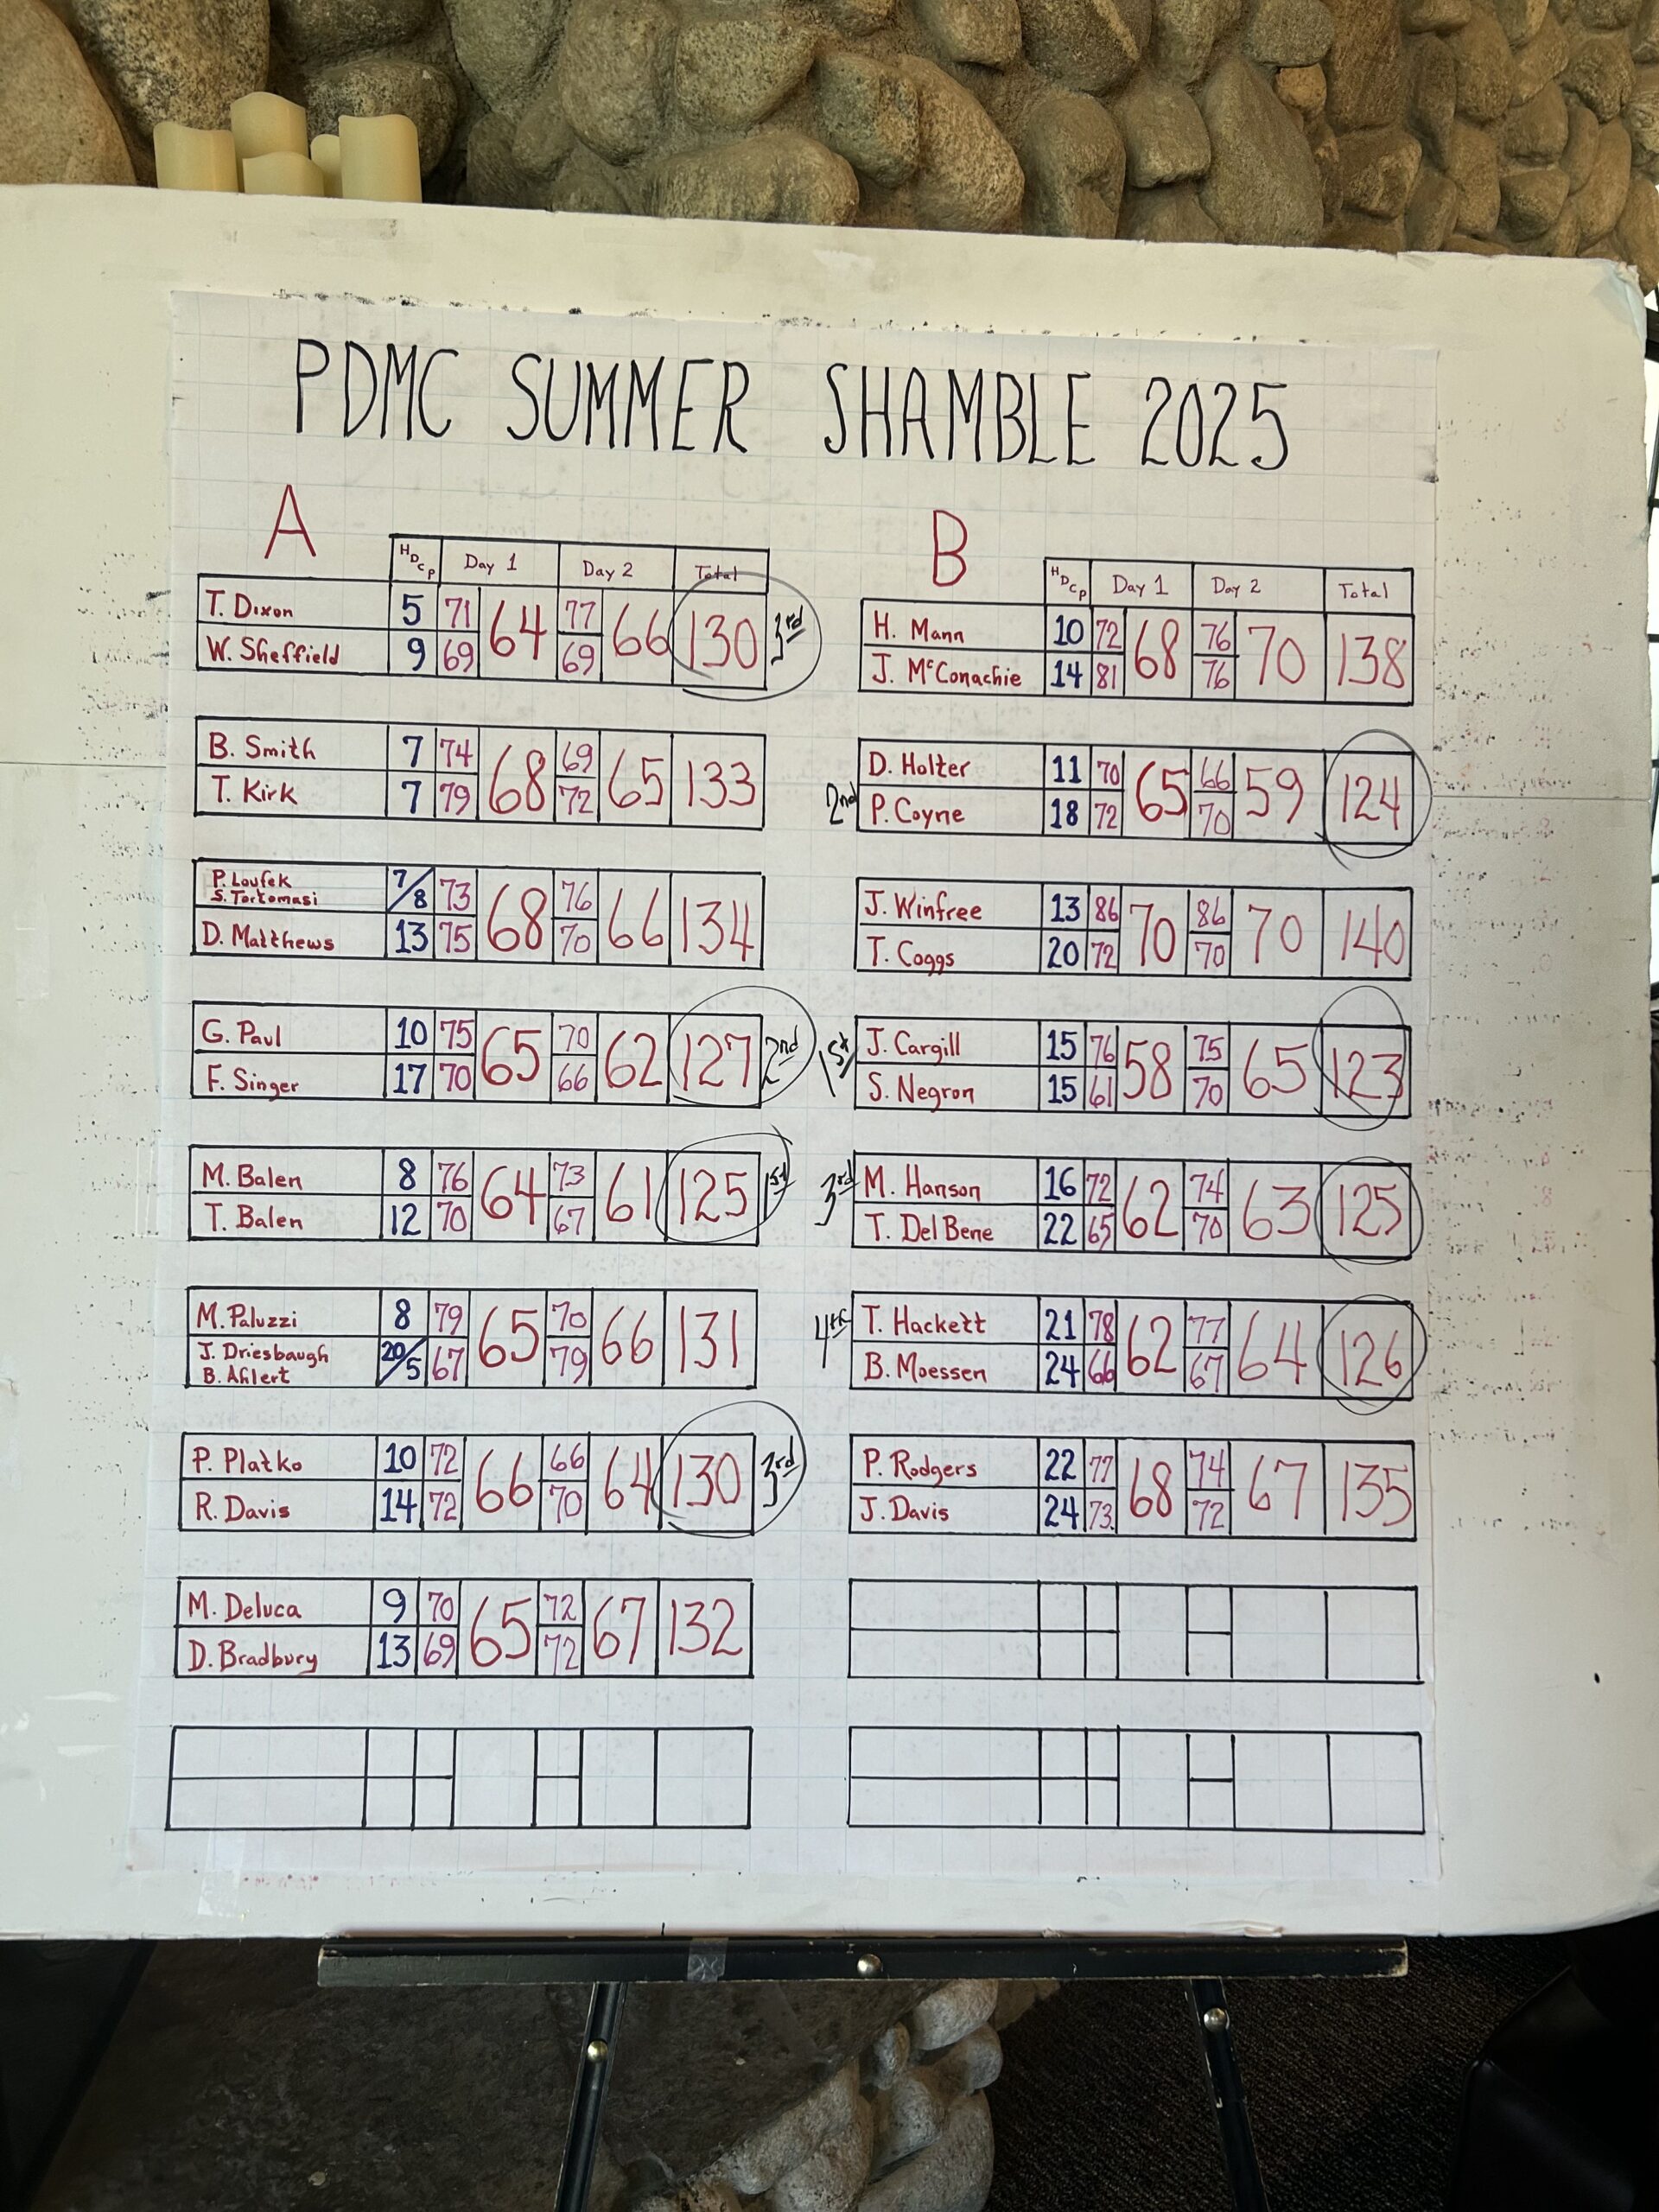 PDMC SUMMER SHAMBLE 2025
A
HDCP Day 1 Day 2 Total
T. Dixon 5 71 64 77 66 130 3rd
W. Sheffield 9 69 69
B. Smith 7 74 68 69 65 133
T. Kirk 7 79 72
P. Loufek 7/8 73 68 76 66 134
S. Tortomasi
D. Matthews 13 75 70
G. Paul 10 75 65 70 62 127 2nd
F. Singer 17 70 66
M. Balen 8 76 64 73 61 125 1st
T. Balen 12 70 67
M. Paluzzi 8 79 65 70 66 131
J. Driesbaugh 20/5 67 79
B. Ahlert
P. Platko 10 72 66 66 64 130 3rd
R. Davis 14 72 70
M. Deluca 9 70 65 72 67 132
D. Bradbury 13 69 72
B
HDCP Day 1 Day 2 Total
H. Mann 10 72 68 76 70 138
J. McConachie 14 81 76
D. Holter 11 70 65 66 59 124
2nd P. Coyne 18 72 70
J. Winfree 13 86 70 86 70 140
T. Coggs 20 72 70
1st J. Cargill 15 76 58 75 65 123
S. Negron 15 61 70
3rd M. Hanson 16 72 62 74 63 125
T. DelBene 22 65 70
4th T. Hackett 21 78 62 77 64 126
B. Moessen 24 66 67
P. Rodgers 22 77 68 74 67 135
J. Davis 24 73 72